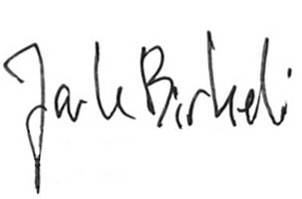 Jarle Birkeli